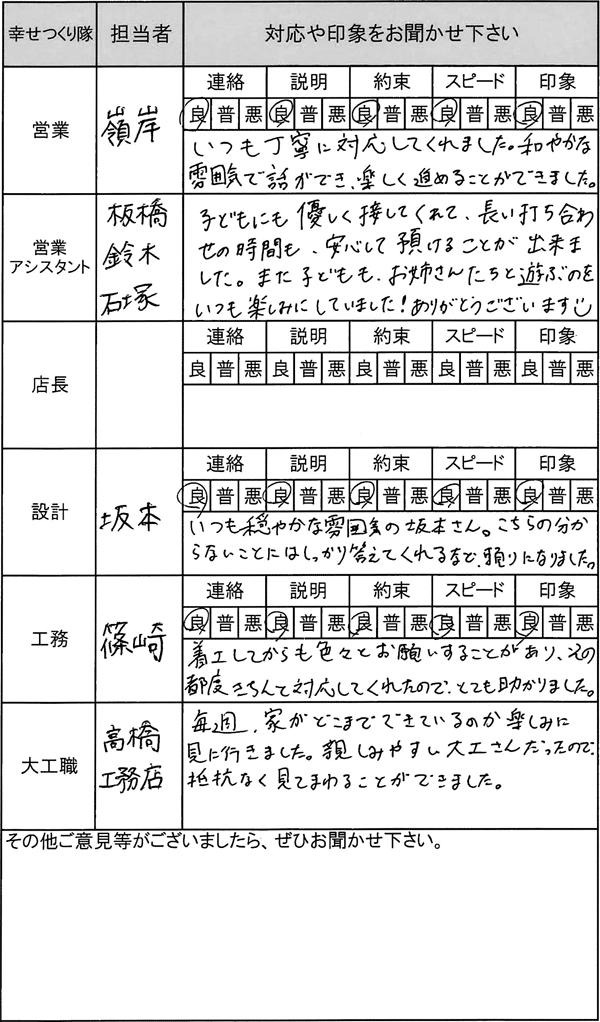 幸せつくり隊 担当者 対応や印象をお聞かせ下さい
営業 嶺岸
連絡 説明 約束 スピード 印象
良 普 悪 良 普 悪 良 普 悪 良 普 悪 良 普 悪
いつも丁寧に対応してくれました。和やかな
雰囲気で話ができ、楽しく進めることができました。
営業
アシスタント
板橋
鈴木
石塚
子どもにも優しく接してくれて、長い打ち合わ
せの時間も、安心して預けることが出来ま
した。また子どもも、お姉さんたちと遊ぶのを
いつも楽しみにしていました!ありがとうございます
店長
連絡 説明 約束 スピード 印象
良 普 悪 良 普 悪 良 普 悪 良 普 悪 良 普 悪
設計 坂本
連絡 説明 約束 スピード 印象
良 普 悪 良 普 悪 良 普 悪 良 普 悪 良 普 悪
いつも穏やかな雰囲気の坂本さん。こちらの分か
らないことにはしっかり答えてくれるなど、頼りになりました。
工務 篠崎
連絡 説明 約束 スピード 印象
良 普 悪 良 普 悪 良 普 悪 良 普 悪 良 普 悪
着工してからも色々とお願いすることがあり、その
都度きちんと対応してくれたので、とても助かりました。
大工職
高橋
工務店
毎週、家がどこまでできているのか楽しみに
見に行きました。親しみやすい大工さんだったので、
抵抗なく見てまわることができました。
その他ご意見等がございましたら、ぜひお聞かせ下さい。